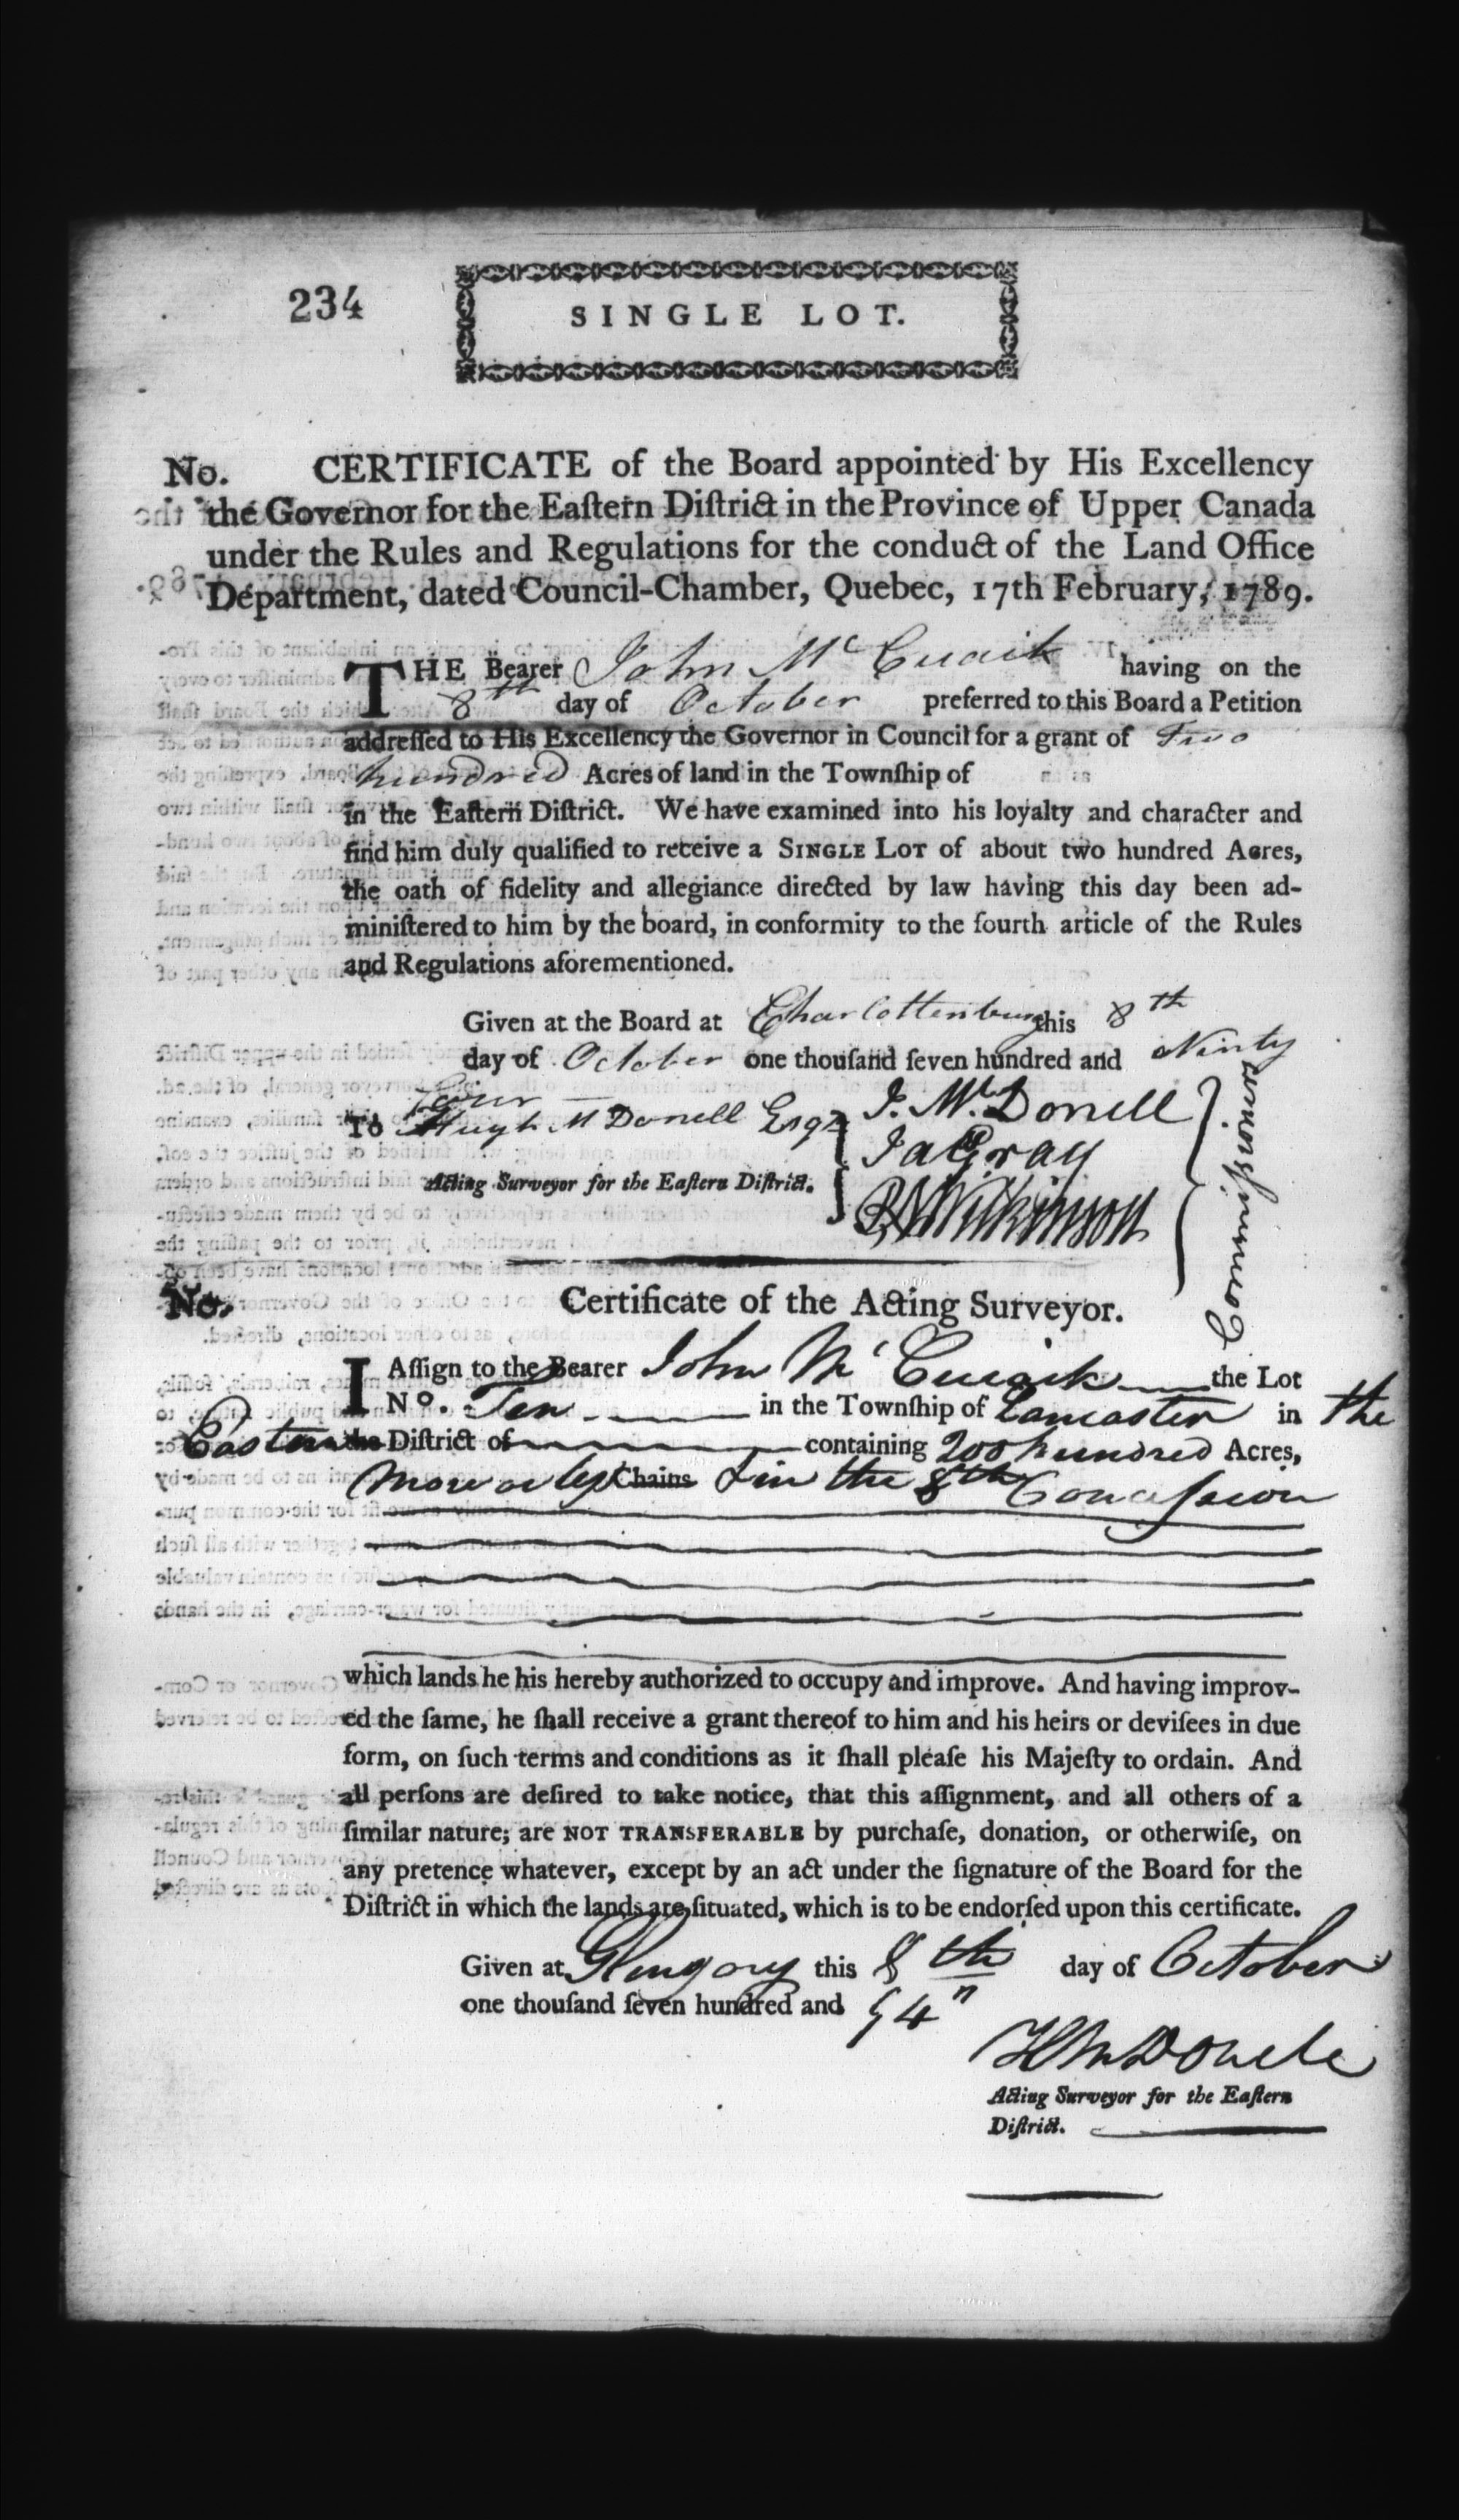 234
SINGLE LOT.
No. CERTIFICATE of the Board appointed by His Excellency
the Governor for the Eaſtern Diſtrict in the Province of Upper Canada
under the Rules and Regulations for the conduct of the Land Office
Department, dated Council-Chamber, Quebec, 17th February, 1789.
THE Bearer John Mc Cuaik having on the
8th day of October preferred to this Board a Petition
addreſſed to His Excellency the Governor in Council for a grant of Two
hundred Acres of land in the Townſhip of
in the Eaſtern Diſtrict. We have examined into his loyalty and character and
find him duly qualified to receive a SINGLE LOT of about two hundred Acres,
the oath of fidelity and allegiance directed by law having this day been ad-
miniſtered to him by the board, in conformity to the fourth article of the Rules
and Regulations aforementioned.
Given at the Board at Charlottenburg this 8th
day of October one thouſand ſeven hundred and Ninty
Four
To Hugh McDonell Esqr
Acting Surveyor for the Eaſtern Diſtrict.
J. McDonell
Ja Gray
R Wilkinson
Commiſsioners
No. Certificate of the Acting Surveyor.
I Aſſign to the Bearer John Mc Cuaik the Lot
No. Ten in the Townſhip of Lancaster in the
Eastern the Diſtrict of containing 200 hundred Acres,
More or leſs Chains & in the 8th Conceſsion
which lands he his hereby authorized to occupy and improve. And having improv-
ed the ſame, he ſhall receive a grant thereof to him and his heirs or deviſees in due
form, on ſuch terms and conditions as it ſhall pleaſe his Majeſty to ordain. And
all perſons are deſired to take notice, that this aſſignment, and all others of a
ſimilar nature; are NOT TRANSFERABLE by purchaſe, donation, or otherwiſe, on
any pretence whatever, except by an act under the ſignature of the Board for the
Diſtrict in which the lands are ſituated, which is to be endorſed upon this certificate.
Given at Glengary this 8th day of October
one thouſand ſeven hundred and 94"
H McDonell
Acting Surveyor for the Eaſtern
Diſtrict.